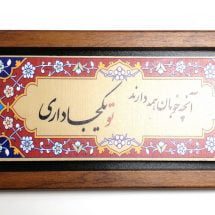 آنچه خوبان همه دارند
تو یکجا داری